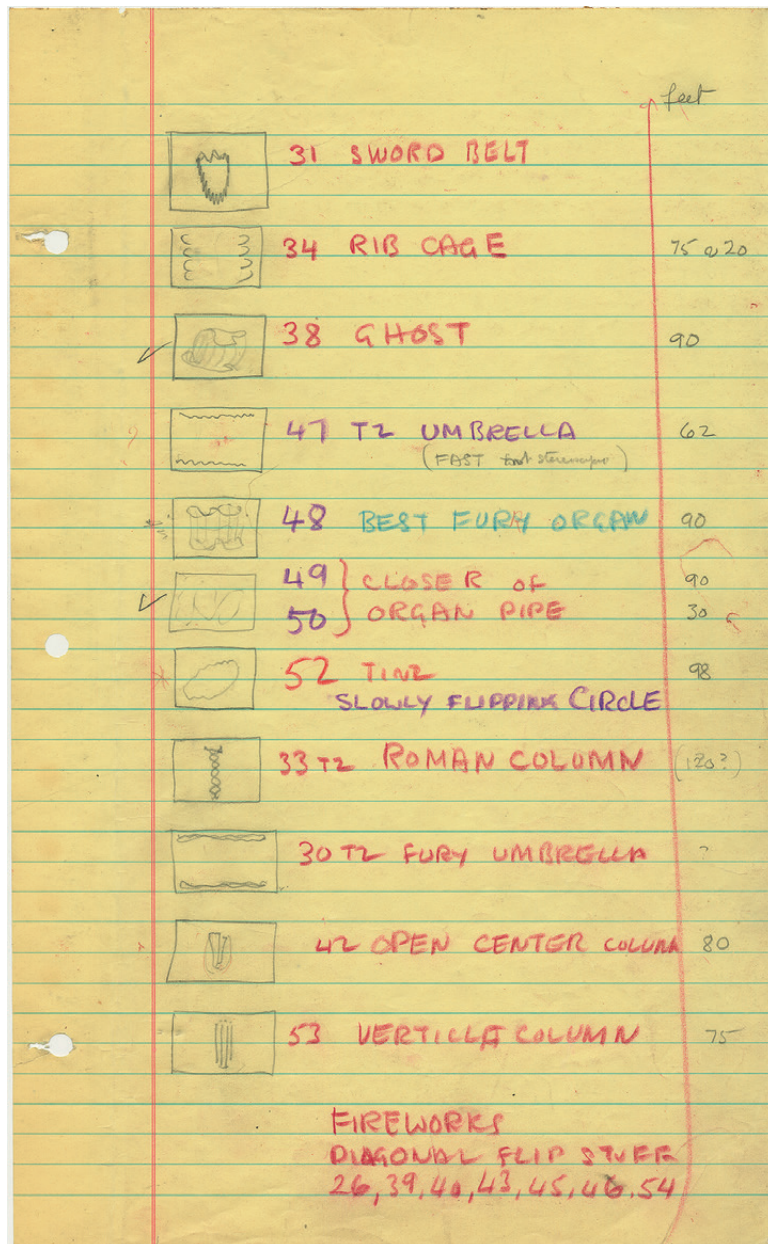 feet
31 SWORD BELT
34 RIB CAGE 75 a 20
38 GHOST 90
47 T2 UMBRELLA 62
(FAST
48 BEST FURY ORGAN 90
49 } CLOSER OF 90
50 } ORGAN PIPE 30
52 TINZ 98
SLOWLY FLIPPING CIRCLE
33 T2 ROMAN COLUMN (120?)
30 T2 FURY UMBRELLA ?
42 OPEN CENTER COLUMN 80
53 VERTICLA COLUMN 75
FIREWORKS
DIAGONAL FLIP STUFF
26, 39, 40, 43, 45, 46, 54